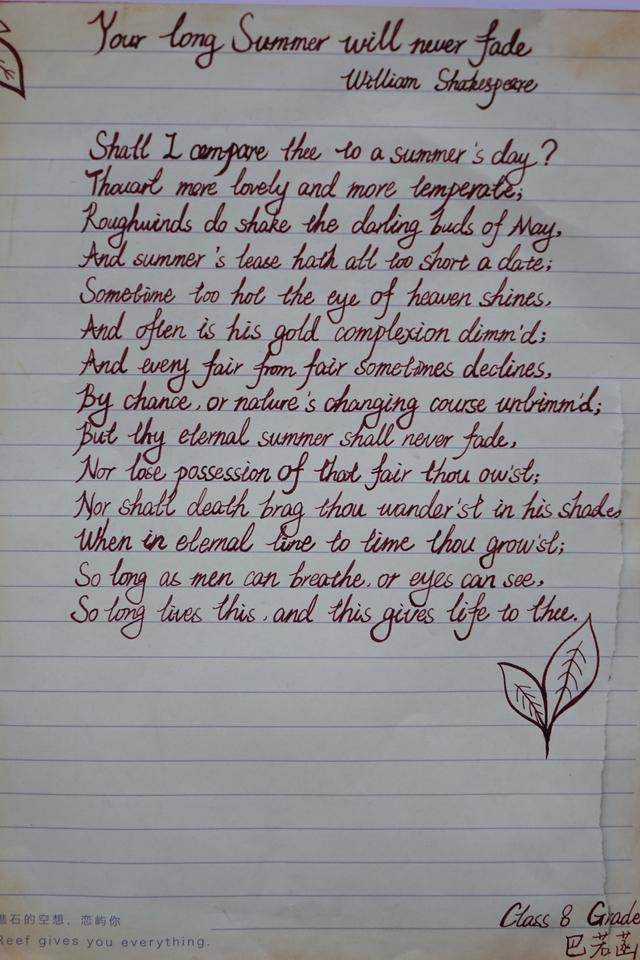 Your long Summer will never fade
William Shakespeare
Shall I compare thee to a summer's day?
Thouart more lovely and more temperate;
Roughwinds do shake the darling buds of May,
And summer's lease hath all too short a date;
Sometime too hot the eye of heaven shines,
And often is his gold complexion dimm'd;
And every fair from fair sometimes declines,
By chance, or nature's changing course untrimm'd;
But thy eternal summer shall never fade,
Nor lose possession of that fair thou ow'st;
Nor shall death brag thou wander'st in his shade,
When in eternal line to time thou grow'st;
So long as men can breathe, or eyes can see,
So long lives this, and this gives life to thee.
礁石的空想，恋屿你
Reef gives you everything.
Class 8 Grade
巴若菡